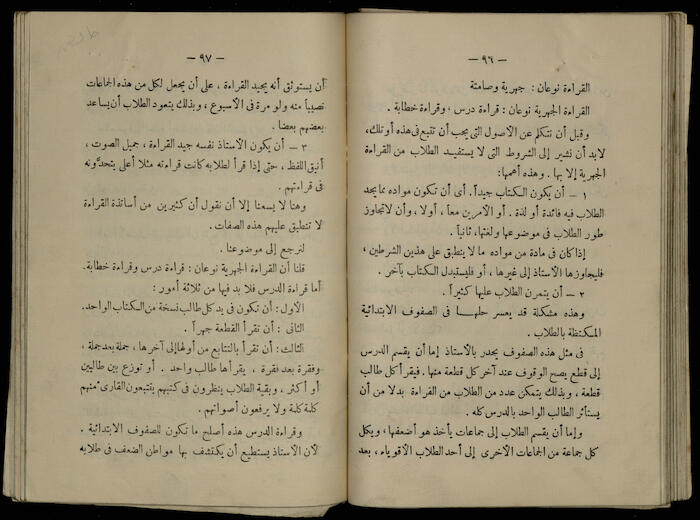 — ٩٦ —
القراءة نوعان : جهرية وصامتة
القراءة الجهرية نوعان : قراءة درس ، وقراءة خطابة .
وقبل أن نتكلم عن الأصول التي يجب أن تتبع في هذه أو تلك ،
لابد أن نشير إلى الشروط التي لا يستفيد الطلاب من القراءة
الجهرية إلا بها . وهذه أهمها :
١ — أن يكون الكتاب جيداً . أى أن تكون مواده مما يجد
الطلاب فيه فائدة أو لذة . أو الأمرين معاً ، أولا ، وأن لا تتجاوز
طور الطلاب في موضوعها ولغتها ، ثانياً .
إذا كان في مادة من مواده ما لا ينطبق على هذين الشرطين ،
فليجاوزها الأستاذ إلى غيرها ، أو فليستبدل الكتاب بآخر .
٢ — أن يتمرن الطلاب عليها كثيراً .
وهذه مشكلة قد يعسر حلها في الصفوف الابتدائية
المكتظة بالطلاب .
في مثل هذه الصفوف يجدر بالأستاذ إما أن يقسم الدرس
إلى قطع يصح الوقوف عند آخر كل قطعة منها . فيقرأ كل طالب
قطعة ، وبذلك يتمكن عدد من الطلاب من القراءة بدلا من أن
يستأثر الطالب الواحد بالدرس كله .
وإما أن يقسم الطلاب إلى جماعات يأخذ هو أضعفها ، ويكل
كل جماعة من الجماعات الأخرى إلى أحد الطلاب الأقوياء ، بعد
— ٩٧ —
أن يستوثق أنه يجيد القراءة ، على أن يجعل لكل من هذه الجماعات
نصيباً منه ولو مرة في الأسبوع ، وبذلك يتعود الطلاب أن يساعد
بعضهم بعضا .
٣ — أن يكون الأستاذ نفسه جيد القراءة ، جميل الصوت ،
أنيق اللفظ ، حتى إذا قرأ لطلابه كانت قراءته مثلا أعلى يتحدَّونه
في قراءتهم .
وهنا لا يسعنا إلا أن نقول أن كثيرين من أساتذة القراءة
لا تنطبق عليهم هذه الصفات .
لنرجع إلى موضوعنا .
قلنا أن القراءة الجهرية نوعان : قراءة درس وقراءة خطابة .
أما قراءة الدرس فلا بد فيها من ثلاثة أمور :
الأول : أن تكون في يد كل طالب نسخة من الكتاب الواحد .
الثانى : أن تقرأ القطعة جهراً .
الثالث : أن تقرأ بالتتابع من أولها إلى آخرها ، جملة بعد جملة ،
وفقرة بعد فقرة ، يقرأها طالب واحد . أو توزع بين طالبين
أو أكثر ، وبقية الطلاب ينظرون في كتبهم يتتبعون القارئ منهم
كلمة كلمة ولا يرفعون أصواتهم .
وقراءة الدرس هذه أصلح ما تكون للصفوف الابتدائية .
لأن الأستاذ يستطيع أن يكتشف بها مواطن الضعف في طلابه